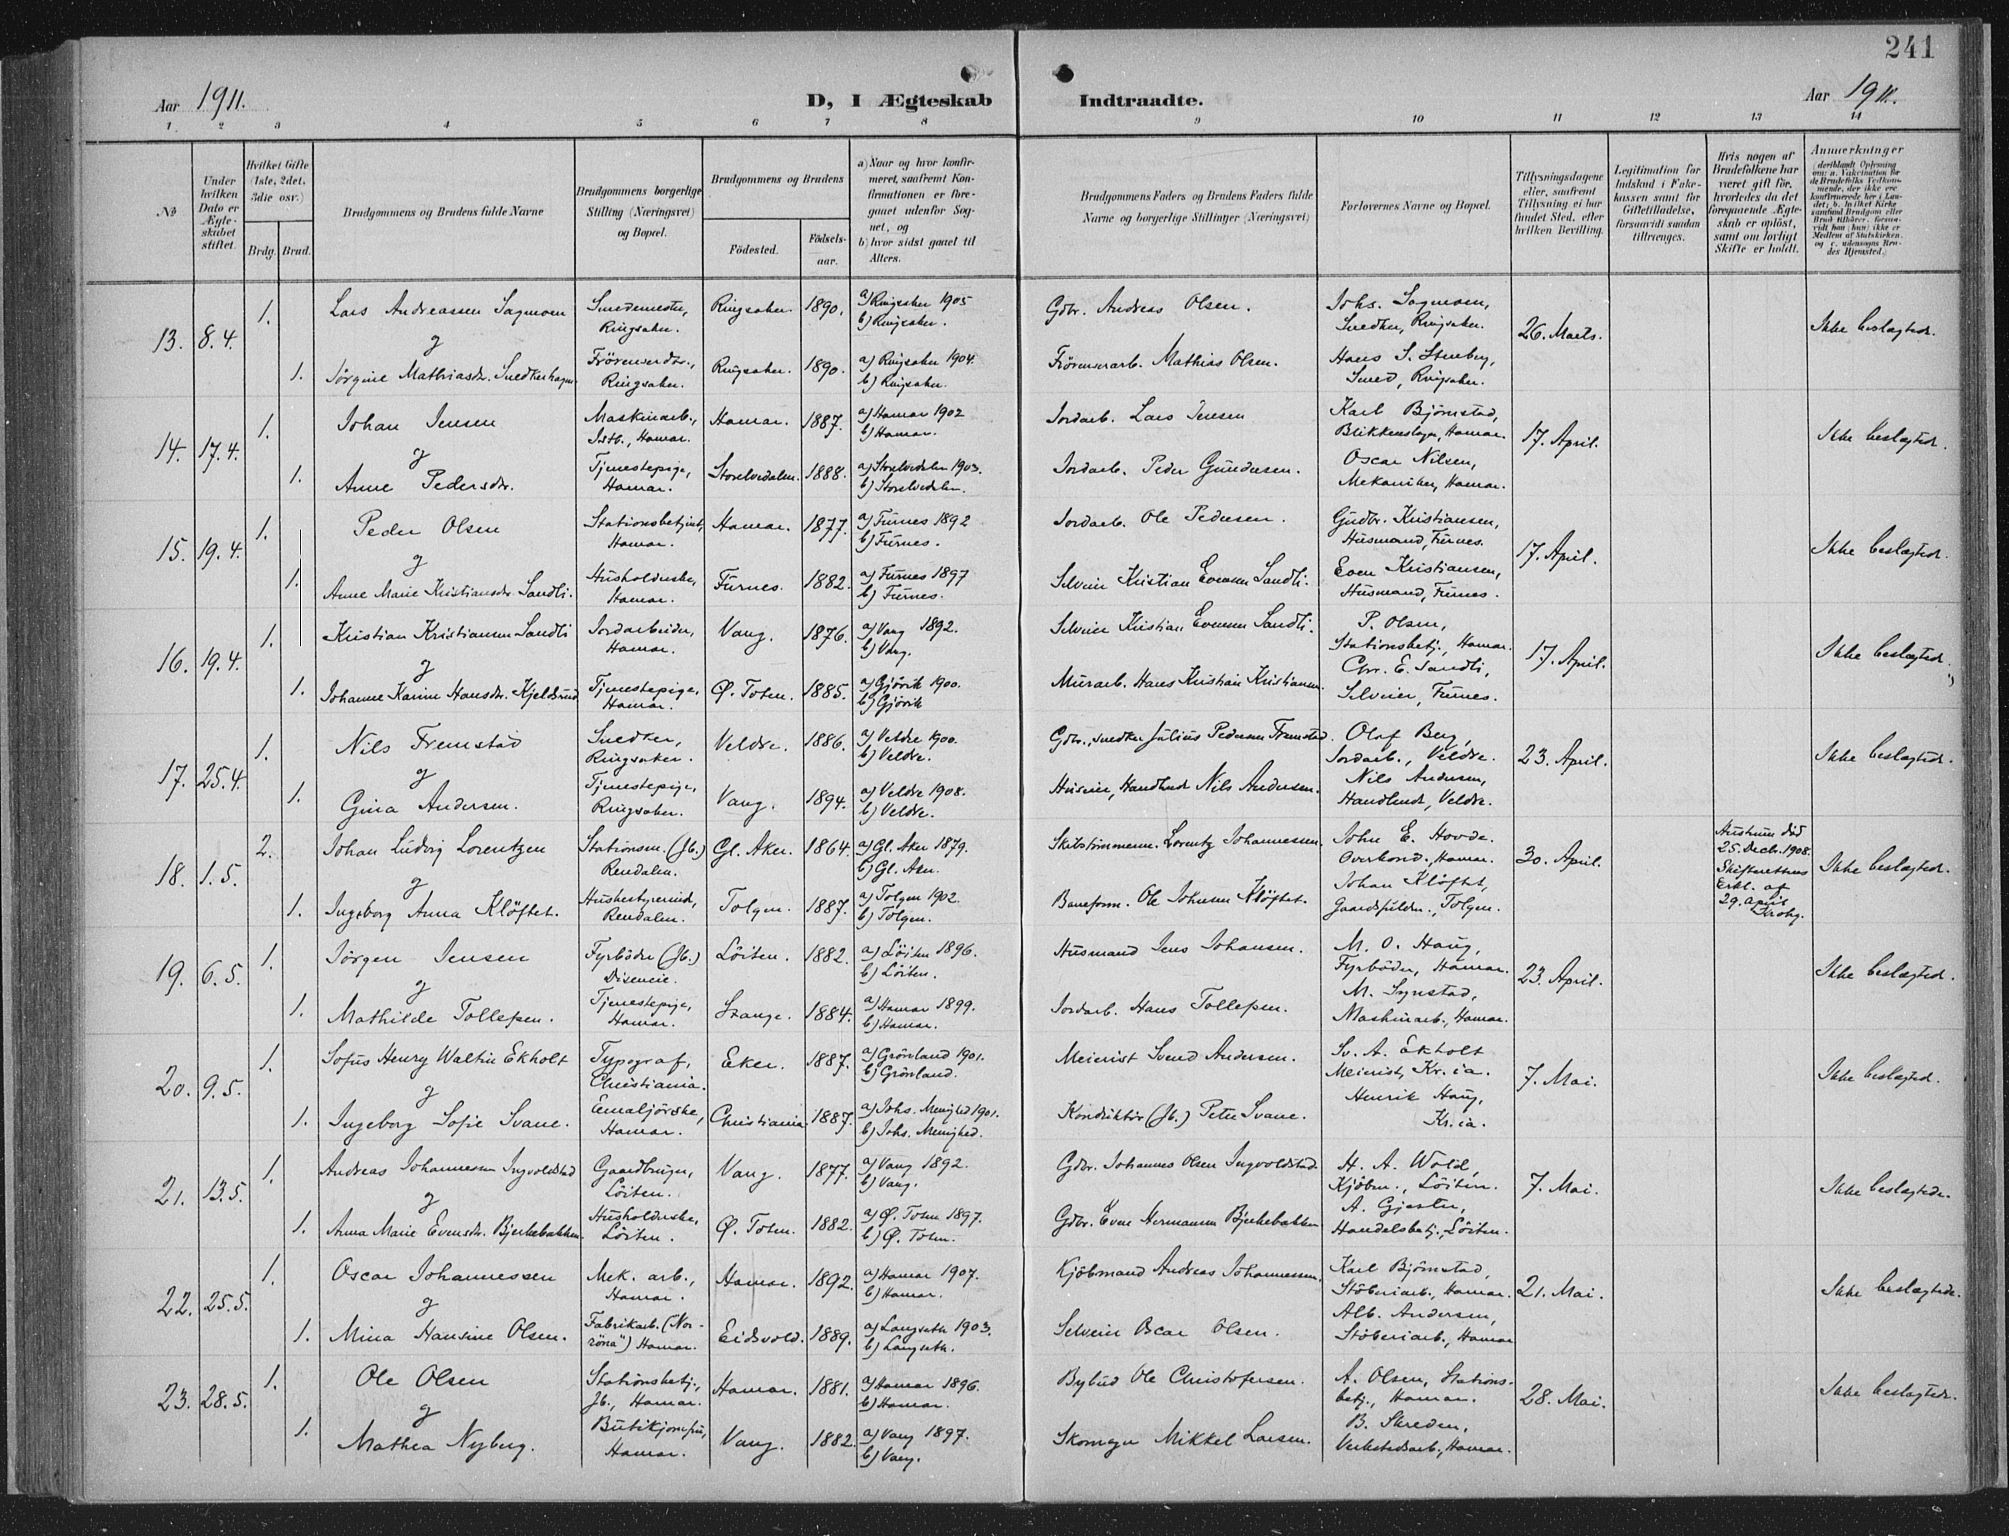 241
Aar 1911.
D, I Ægteskab Indtraadte.
Aar 1911.
1 2 3 4 5 6 7 8 9 10 11 12 13 14
№
Under hvilken Dato er Ægteskabet stiftet.
Hvilket Gifte (1ste, 2det, 3die osv.)
Brdg. Brud.
Brudgommens og Brudens fulde Navne
Brudgommens borgerlige Stilling (Næringsvei) og Bopæl.
Brudgommens og Brudens
Födested.
Födselsaar.
a) Naar og hvor konfirmeret, saafremt Konfirmationen er foregaaet udenfor Sognet, og
b) hvor sidst gaaet til Alters.
Brudgommens Faders og Brudens Faders fulde Navne og borgerlige Stillinger (Næringsvei)
Forlovernes Navne og Bopæl.
Tillysningsdagene eller, saafremt Tillysning ei har fundet Sted, efter hvilken Bevilling.
Legitimation for Indskud i Enkekassen samt for Giftetilladelse, forsaavidt saadan tiltrænges.
Hvis nogen af Brudefolkene har været gift för, hvorledes da det foregaaende Ægteskab er oplöst, samt om lovligt Skifte er holdt.
Anmerkninger
13. 8.4. 1. Lars Andreassen Sagmoen Snedkermester, Ringsaker. Ringsaker. 1890. a) Ringsaker 1905 b) Ringsaker. Gdbr. Andreas Olsen. Johs. Sagmoen, Snedker, Ringsaker. 26. Marts. Ikke beslægted.
g
1. Jörgine Mathiasdr. Snedkerhagen Ringsaker. Ringsaker. 1890. a) Ringsaker 1904. b) Ringsaker. Mathias Olsen. Hans S. Stenberg, Smed, Ringsaker.
14. 17.4. 1. Johan Jensen Maskinarb., Hamar. Hamar. 1887. a) Hamar 1902 b) Hamar. Jordarb. Lars Jensen Karl Björnstad, Blikkenslager, Hamar. 17. April. Ikke beslægted.
g
1. Anne Pedersdr. Tjenestepige, Hamar. Storelvedalen. 1888. a) Storelvedalen 1903. b) Storelvedalen. Jordarb. Peder Gundersen. Oscar Nilsen, Mekaniker, Hamar.
15. 19.4. 1. Peder Olsen Stationsbetjent, Hamar. Hamar. 1877. a) Furnes 1892 b) Furnes. Jordarb. Ole Pedersen. Gudbr. Kristiansen, Husmand, Furnes. 17. April. Ikke beslægted.
g
1. Anne Marie Kristiansdr. Sandli. Husholderske, Hamar. Furnes. 1882. a) Furnes 1897 b) Furnes. Selveier Kristian Evensen Sandli. Even Kristiansen, Husmand, Furnes.
16. 19.4. 1. Kristian Kristiansen Sandli Jordarbeider, Hamar. Vang. 1876. a) Vang 1892. b) Vang. Selveier Kristian Evensen Sandli. P. Olsen, Stationsbetj., Hamar. 17. April. Ikke beslægted.
g
1. Johanne Karine Hansdr. Kjeldsrud Tjenestepige, Hamar. Ø. Toten. 1885. a) Gjövik 1900. b) Gjövik Murarb. Hans Kristian Kristiansen. Chr. E. Sandli, Selveier, Furnes.
17. 25.4. 1. Nils Fremstad Snedker, Ringsaker. Veldre. 1886. a) Veldre 1900. b) Veldre. Gdbr., snedker Julius Pedersen Fremstad. Olaf Berg, Jordarb., Veldre. 23. April. Ikke beslægted.
g
1. Gina Andersen. Tjenestepige, Ringsaker. Vang. 1894. a) Veldre 1908. b) Veldre. Huseier, Handlende Nils Andersen. Nils Andersen, Handlende, Veldre.
18. 1.5. 2. Johan Ludvig Lorentzen Stationsm. (Jb.) Rendalen. Gl. Aker. 1864. a) Gl. Aker 1879. b) Gl. Aker. Skibstömmerm. Lorentz Johannessen. John E. Hovde. Overkond., Hamar. 30. April. Hustruen död 25. Decb. 1908. Skifterettens Erkl. af 29. April Ikke beslægted.
g
1. Ingeborg Anna Klöftet. Husbestyrerinde, Rendalen. Tolgen. 1887. a) Tolgen 1902. b) Tolgen. Baneform. Ole Johnsen Klöftet. Johan Klöftet, Tolgen.
19. 6.5. 1. Jörgen Jensen Fyrböder (Jb.) Disenveien. Löiten. 1882. a) Löiten 1896. b) Löiten. Husmand Jens Johansen. M. O. Haug, Fyrböder, Hamar. 23. April. Ikke beslægted.
g
1. Mathilde Tollefsen. Tjenestepige, Hamar. Stange. 1884. a) Hamar 1899. b) Hamar. Jordarb. Hans Tollefsen. M. Synstad, Maskinarb., Hamar.
20. 9.5. 1. Sofus Henry Walter Ekholt Typograf, Christiania. Eker. 1887. a) Grönland 1901. b) Grönland. Meierist Svend Andersen. Sv. A. Ekholt Meierist, Kr.ia. 7. Mai. Ikke beslægted.
g
1. Ingeborg Sofie Svane. Emaljörske, Hamar. Christiania. 1887. a) Johs. Menighed 1901. b) Johs. Menighed. Konduktör (Jb.) Peter Svane. Henrik Haug, Kr.ia.
21. 13.5. 1. Andreas Johannessen Ingvoldstad Gaardbruger, Löiten. Vang. 1877. a) Vang 1892. b) Vang. Gdbr. Johannes Olsen Ingvoldstad. H. A. Wold, Kjöbm., Löiten. 7. Mai. Ikke beslægtede.
g
1. Anna Marie Evensdr. Bjerkebakken. Husholderske, Löiten. Ø. Toten. 1882. a) Ø. Toten 1897. b) Ø. Toten. Gdbr. Even Hermansen Bjerkebakken A. Gjester, Handelsbetj., Löiten.
22. 25.5. 1. Oscar Johannessen Mek. arb., Hamar. Hamar. 1892. a) Hamar 1907. b) Hamar. Kjöbmand Andreas Johannessen. Karl Björnstad, Stöberiarb., Hamar. 21. Mai. Ikke beslægtede.
g
1. Mina Hansine Olsen. Fabrikarb. ("Norröna") Hamar. Eidsvold. 1889. a) Langseth 1903. b) Langseth. Selveier Oscar Olsen. Alb. Andersen, Stöberiarb., Hamar
23. 28.5. 1. Ole Olsen Stationsbetj., Jb., Hamar. Hamar. 1881. a) Hamar 1896. b) Hamar. Bybud Ole Christofersen. A. Olsen, Stationsbetj., Hamar. 28. Mai. Ikke beslægtede.
g
1. Mathea Nyberg. Butikjomfru, Hamar. Vang. 1882. a) Vang 1897. b) Vang. Skomager Mikkel Larsen. B. Skreden, Verkstedsarb., Hamar.